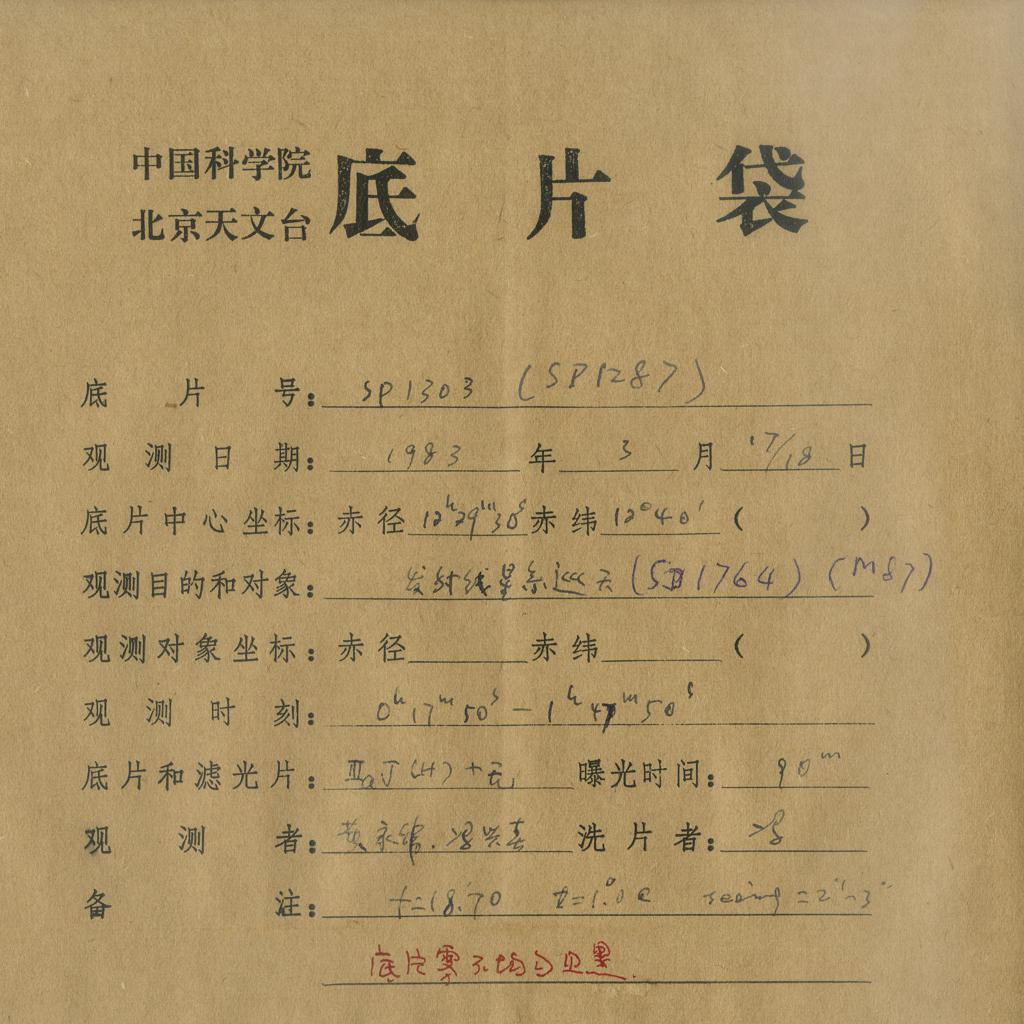 中国科学院
北京天文台 底片袋
底片号: SP1303 (SP1287)
观测日期: 1983年3月17/18日
底片中心坐标: 赤径 12h29m30s 赤纬 12°40′ ( )
观测目的和对象: 发射线星系巡天 (SB1764) (M87)
观测对象坐标: 赤径 赤纬 ( )
观测时刻: 0h17m50s — 1h47m50s
底片和滤光片: ⅢaJ(H)+无 曝光时间: 90m
观测者: 黄永伟. 冯兴春 洗片者: 冯
备注: f=18.70 t=1.°0C seeing=2″~3″
底片雾不均匀